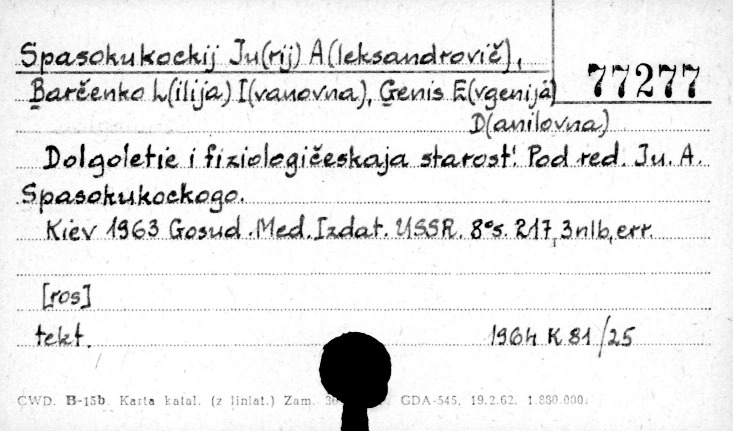 Spasokukockij Ju(rij) A(leksandrovič),
77277
Barčenko L(ilija) I(vanovna), Genis E(vgenija)
D(anilovna)
Dolgoletie i fiziologičeskaja starost' Pod red. Ju. A.
Spasokukockogo.
Kiev 1963 Gosud. Med. Izdat. USSR. 8° s. 217, 3nlb, err.
[ros]
tekt. 1964 K 81/25
CWD. B-15b. Karta katal. (z liniat.) Zam. GDA-545. 19.2.62. 1.880.000.